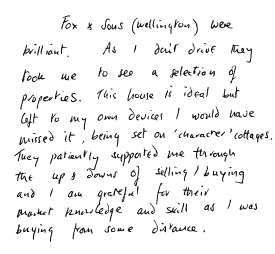 Fox & Sons (Wellington) were
brilliant. As I don't drive they
took me to see a selection of
properties. This house is ideal but
left to my own devices I would have
missed it, being set on 'character' cottages.
They patiently supported me through
the up & downs of selling / buying
and I am grateful for their
market knowledge and skill as I was
buying from some distance.